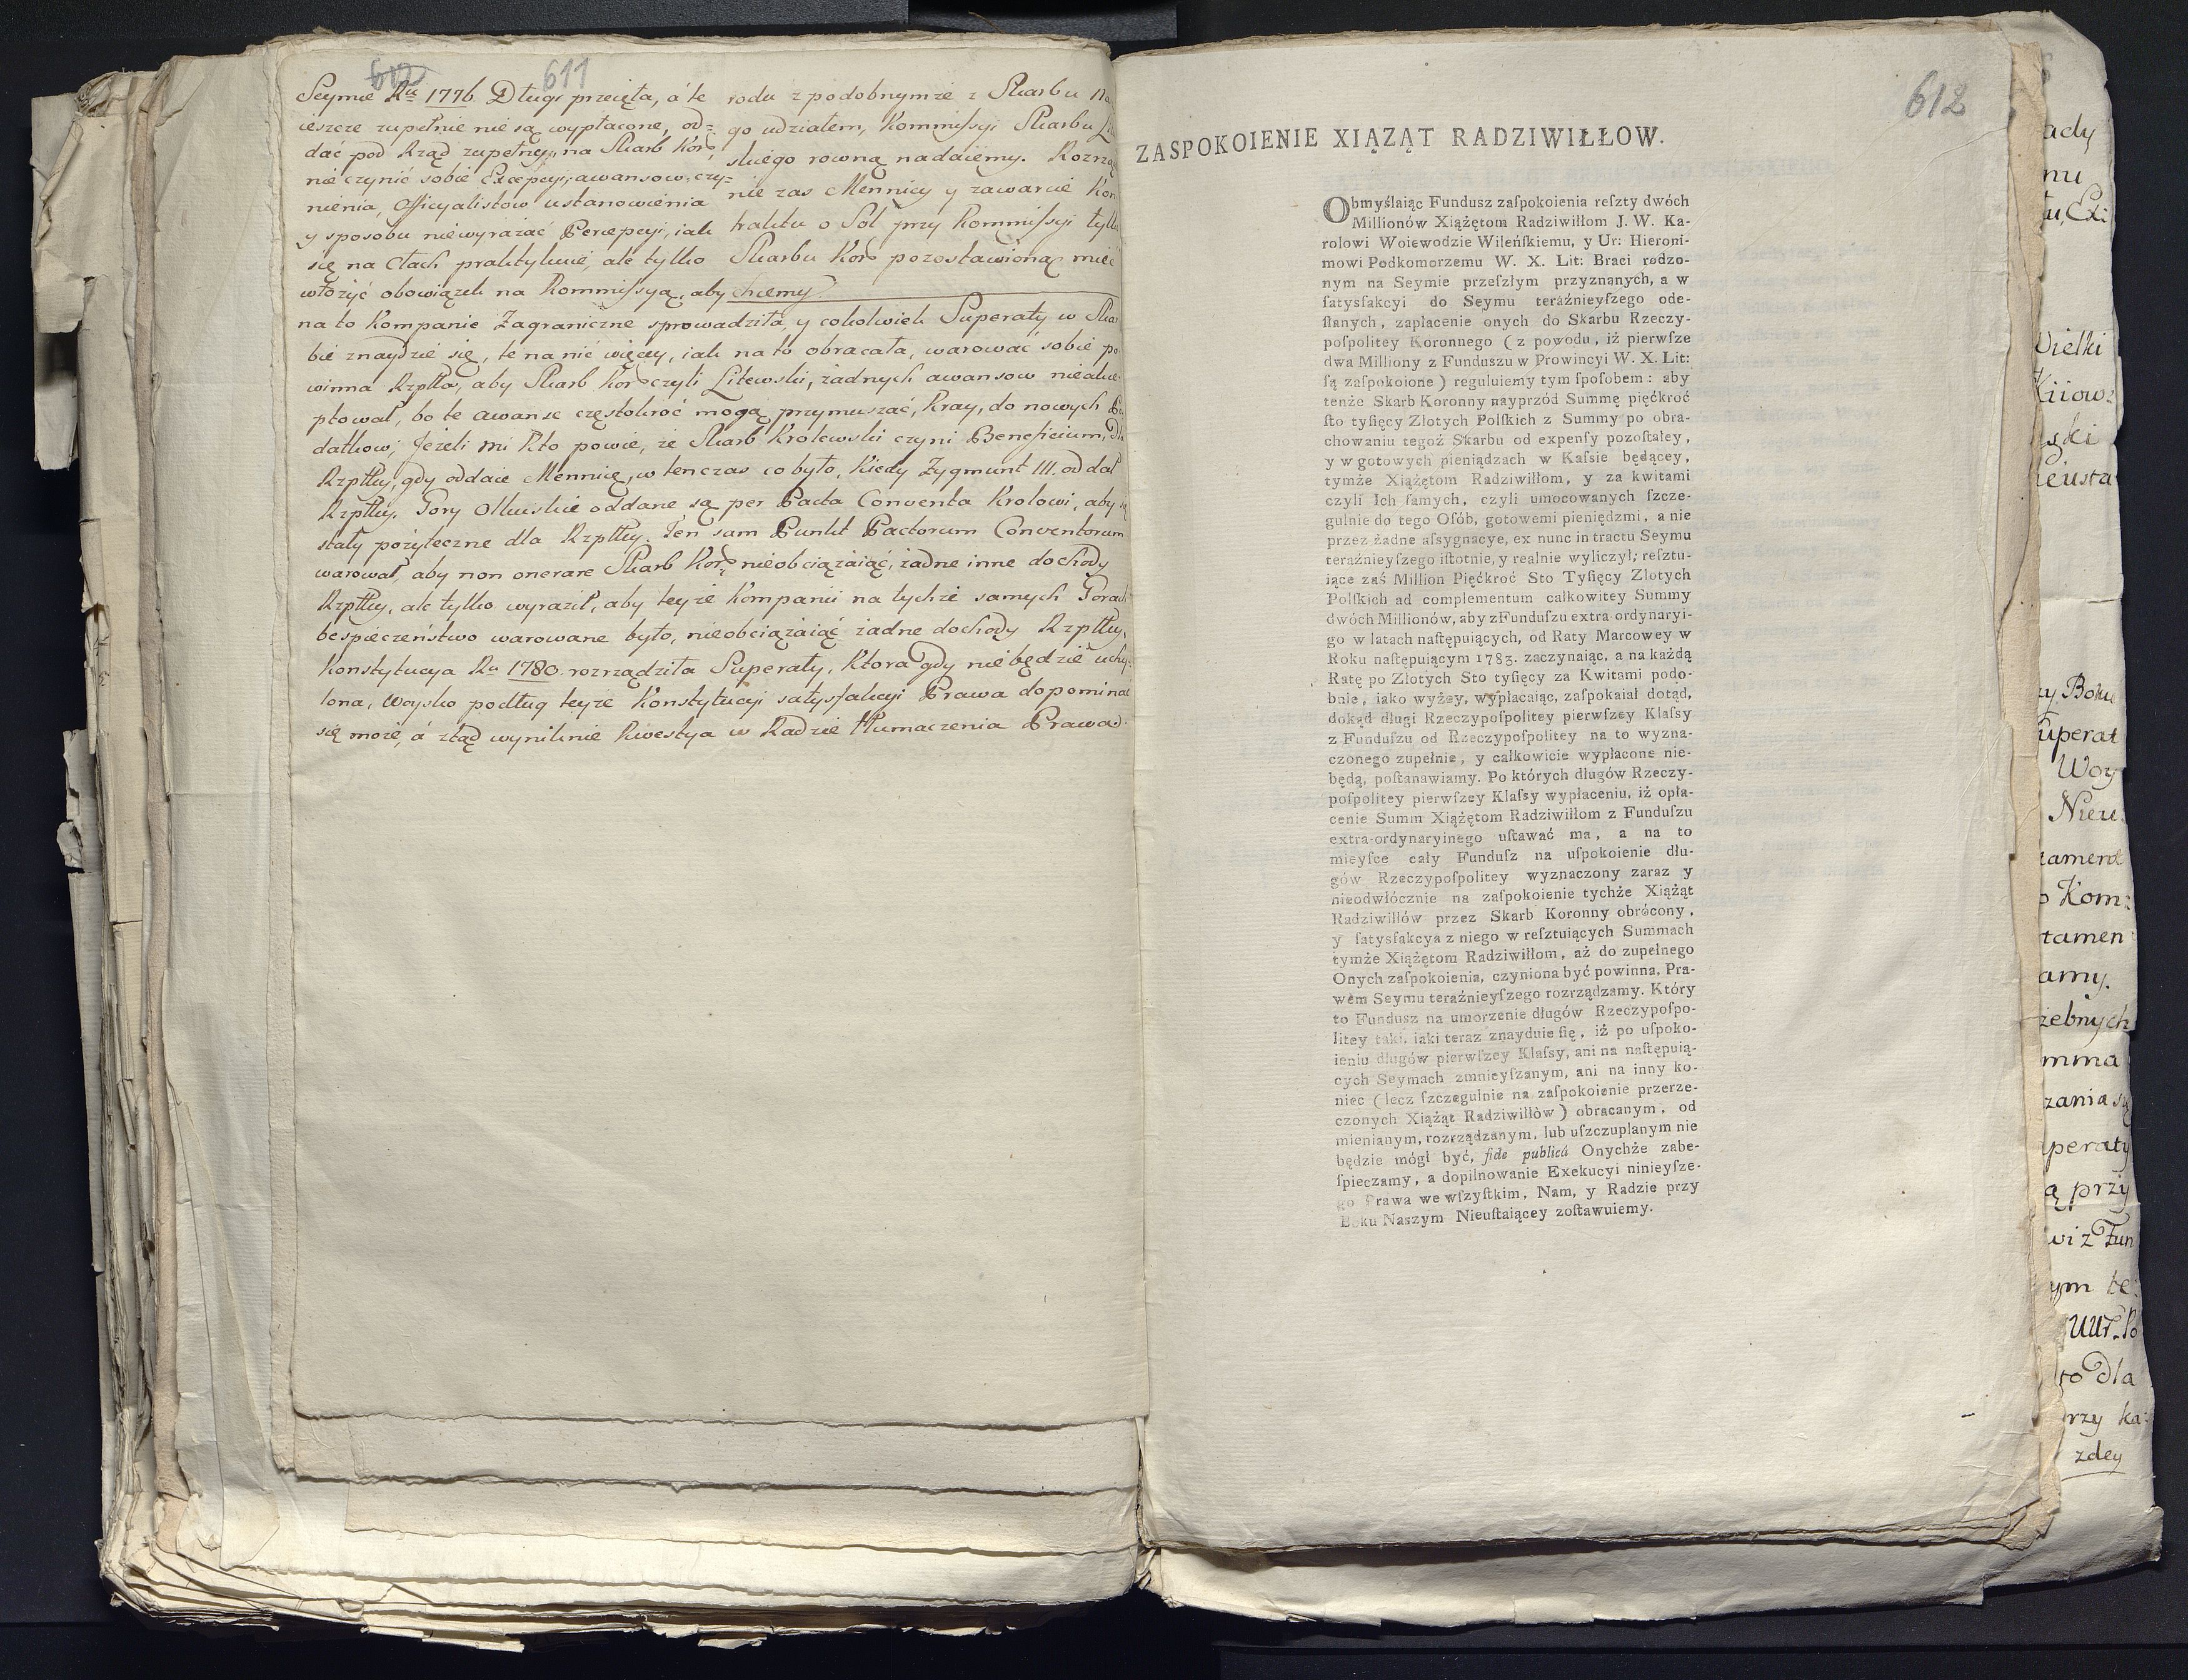 611
Seymie Ru 1776. Długi przeięła, á te
ieszcze zupełnie nie są wypłacone, od=
dać pod Rząd zupełny, na Skarb Kor
nie czynić sobie Excepcyi, awansow, czy=
nienia, Officyalistow ustanowienia
y sposobu niewyrażać Percepcyi, iak
się na Cłach praktykuie, ale tylko
włożyć obowiązek na Kommissyą, aby
rodu z podobnymże z Skarbu
go udziałem, Kommissyi Skarbu
skiego rowną nadaiemy.
nie zas Mennicy y zawarcie
traktu o Sol przy Kommissyi
Skarbu Kor pozostawioną mieć
chcemy.
na to Kompanie Zagraniczne sprowadziła, y cokolwiek Superaty w
bie znaydzie się, te na nic więcey, iak na to obracała, warować sobie
winna Rzplta, aby Skarb Kor czyli Litewski, żadnych awansow nieakce
ptował, bo te awanse częstokroć mogą przymuszać, Kray, do nowych
datkow; Jeżeli mi Kto powie, że Skarb Krolewski czyni Beneficium,
Rzpltey, gdy oddaie Mennicę, w tenczas co było, Kiedy Zygmunt III. oddał
Rzpltey. Gory Olkuskie oddane są per Pacta Conventa Krolowi, aby
stały pożyteczne dla Rzpltey. Ten sam Punkt Pactorum Conventorum
warował, aby non onerare Skarb Kor, nieobciążaiąc, żadne inne dochody
Rzpltey, ale tylko wyraził, aby teyże Kompanii na tychże samych Gorach
bespieczeństwo warowane było, nieobciążaiąc żadne dochody Rzpltey,
Konstytucya Ru 1780. rozrządziła Superaty, Ktora gdy nie będzie uchy=
lona, Woysko podług teyże Konstytucyi satysfakcyi Prawa dopominać
się może, á ztąd wyniknie Kwestya w Radzie tłumaczenia Prawa.
612
ZASPOKOIENIE XIĄŻĄT RADZIWIŁŁOW.
Obmyślaiąc Fundusz zaſpokoienia reſzty dwóch
Millionów Xiążętom Radziwiłłom J. W. Ka-
rolowi Woiewodzie Wileńſkiemu, y Ur: Hieroni-
mowi Podkomorzemu W. X. Lit: Braci rodzo-
nym na Seymie przeſzłym przyznanych, a w
ſatysſakcyi do Seymu teraźnieyſzego ode-
ſlanych, zapłacenie onych do Skarbu Rzeczy-
poſpolitey Koronnego (z powodu, iż pierwſze
dwa Milliony z Funduszu w Prowincyi W. X. Lit:
ſą zaſpokoione) reguluiemy tym ſpoſobem: aby
tenże Skarb Koronny nayprzód Summę pięćkroć
ſto tyſięcy Złotych Polſkich z Summy po obra-
chowaniu tegoż Skarbu od expenſy pozoſtałey,
y w gotowych pieniądzach w Kaſsie będącey,
tymże Xiążętom Radziwiłłom, y za kwitami
czyli Ich ſamych, czyli umocowanych ſzcze-
gulnie do tego Oſób, gotowemi pieniędzmi, a nie
przez żadne aſsygnacye, ex nunc in tractu Seymu
teraźnieyſzego iſtotnie, y realnie wyliczył; reſztu-
iące zaś Million Pięćkroć Sto Tyſięcy Złotych
Polſkich ad complementum całkowitey Summy
dwóch Millionów, aby z Funduſzu extra ordynaryi-
go w latach naſtępuiących, od Raty Marcowey w
Roku naſtępuiącym 1783. zaczynaiąc, a na każdą
Ratę po Złotych Sto tyſięcy za Kwitami podo-
bnie, iako wyżey, wypłacaiąc, zaſpokaiał dotąd,
dokąd długi Rzeczypoſpolitey pierwſzey Klaſsy
z Funduſzu od Rzeczypoſpolitey na to wyzna-
czonego zupełnie, y całkowicie wypłacone nie-
będą, poſtanawiamy. Po których długów Rzeczy-
poſpolitey pierwſzey Klaſsy wypłaceniu, iż opła-
cenie Summ Xiążętom Radziwiłłom z Funduſzu
extra-ordynaryinego uſtawać ma, a na to
mieyſce cały Funduſz na uſpokoienie dłu-
gów Rzeczypoſpolitey wyznaczony zaraz y
nieodwłócznie na zaſpokoienie tychże Xiążąt
Radziwiłłów przez Skarb Koronny obrócony,
y ſatysfakcya z niego w reſztuiących Summach
tymże Xiążętom Radziwiłłom, aż do zupełnego
Onych zaſpokoienia, czyniona być powinna, Pra-
wem Seymu teraźnieyſzego rozrządzamy. Który
to Fundusz na umorzenie długów Rzeczypoſpo-
litey taki, iaki teraz znayduie ſię, iż po uſpoko-
ieniu długów pierwſzey Klaſsy, ani na naſtępuią-
cych Seymach zmnieyſzanym, ani na inny ko-
niec (lecz ſzczegulnie na zaſpokoienie przerze-
czonych Xiążąt Radziwiłłów) obracanym, od
mienianym, rozrządzanym, lub uſzczuplanym nie
będzie mógł być, fide publicâ Onychże zabe-
ſpieczamy, a dopilnowanie Exekucyi ninieyſze-
go Prawa we wſzyſtkim, Nam, y Radzie przy
Boku Naszym Nieuſtaiącey zoſtawuiemy.